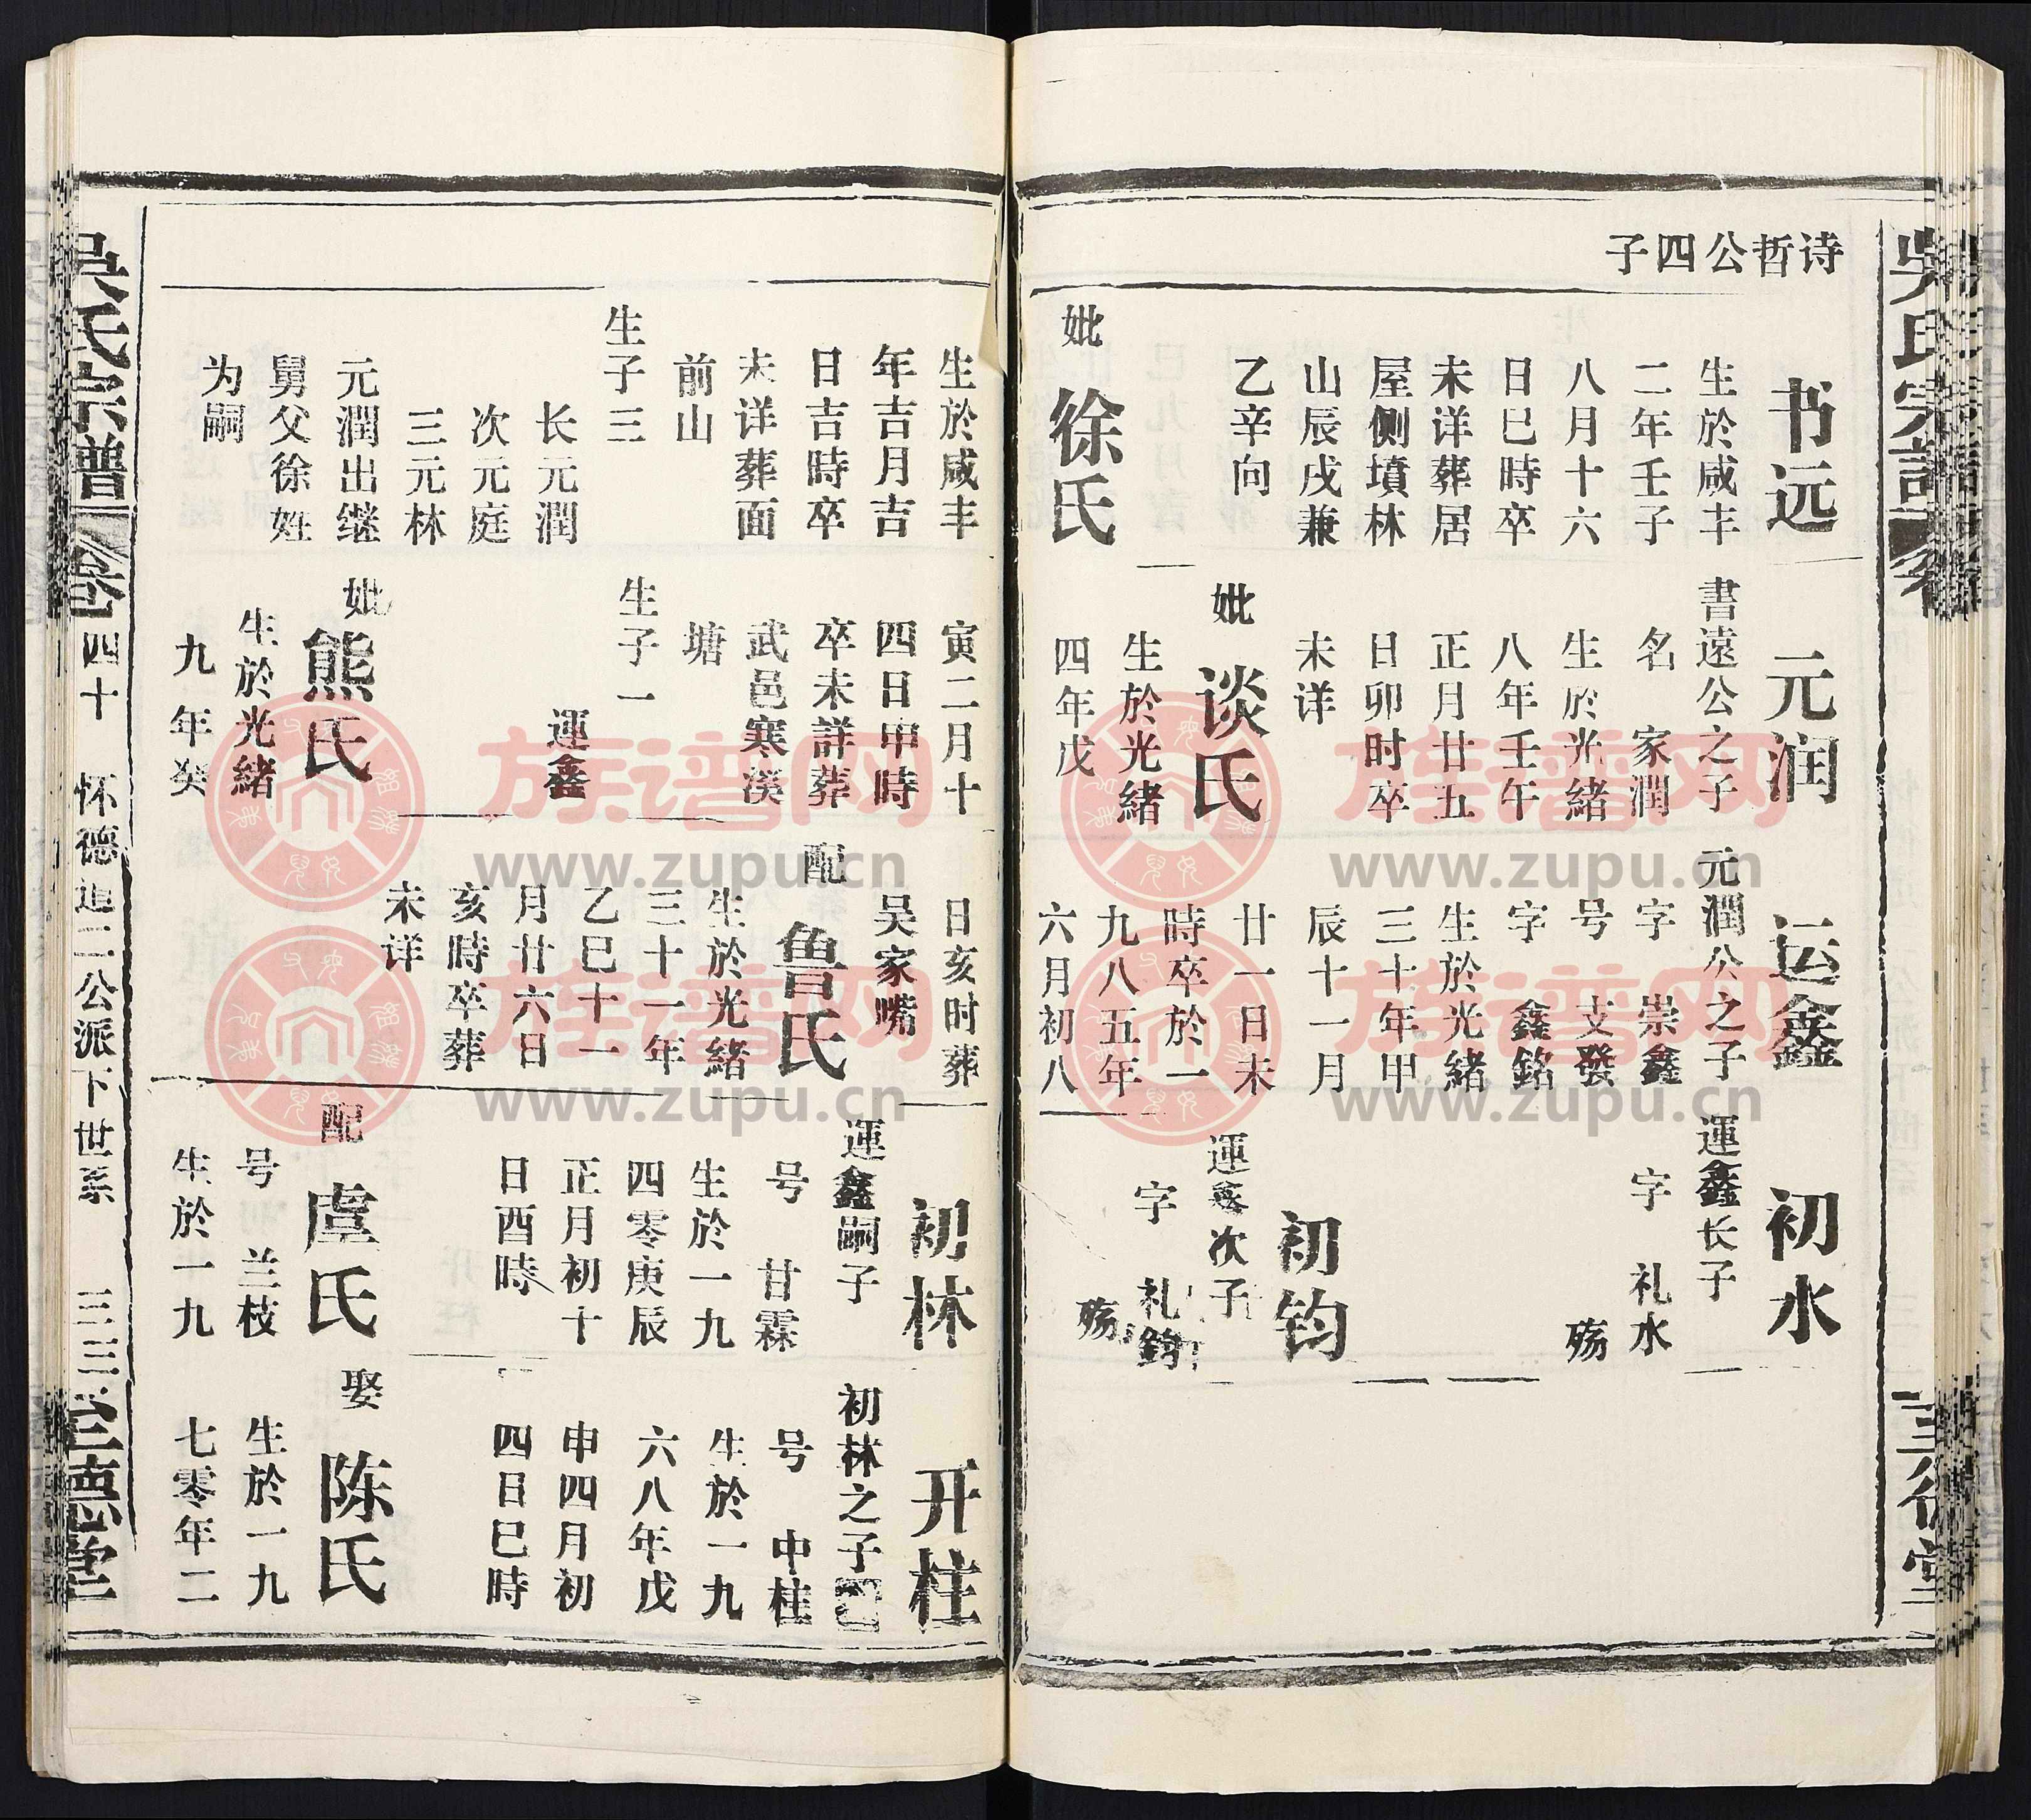 诗哲公四子
书远
生於咸丰
二年壬子
八月十六
日巳時卒
未详葬居
屋侧墳林
山辰戌兼
乙辛向
妣
徐氏
生於咸丰
年吉月吉
日吉時卒
未详葬面
前山
生子三
长元潤
次元庭
三元林
元潤出继
舅父徐姓
为嗣
元润
書遠公之子
名 家潤
生於光緒
八年壬午
正月廿五
日卯时卒
未详
妣
谈氏
生於光緒
四年戊
寅二月十
四日申時
卒未詳葬
武邑寒溪
塘
生子一
運鑫
妣
熊氏
生於光緒
九年癸
运鑫
元潤公之子
字 崇鑫
号 支發
字 鑫銘
生於光緒
三十年甲
辰十一月
廿一日未
時卒於一
九八五年
六月初八
日亥时葬
吴家嘴
配
鲁氏
生於光緒
三十一年
乙巳十一
月廿六日
亥時卒葬
未详
初水
運鑫长子
字 礼水
殇
初钧
運鑫次子
字 礼鈞
殇
初林
運鑫嗣子
号 甘霖
生於一九
四零庚辰
正月初十
日酉時
配
虞氏
号 兰枝
生於一九
开柱
初林之子
号 中柱
生於一九
六八年戊
申四月初
四日巳時
娶
陈氏
生於一九
七零年二
吴氏宗譜
卷
四十
怀德追二公派下世系
三三
三德堂
吴氏宗譜
卷
三德堂
族谱网
www.zupu.cn
族谱网
www.zupu.cn
族谱网
www.zupu.cn
族谱网
www.zupu.cn